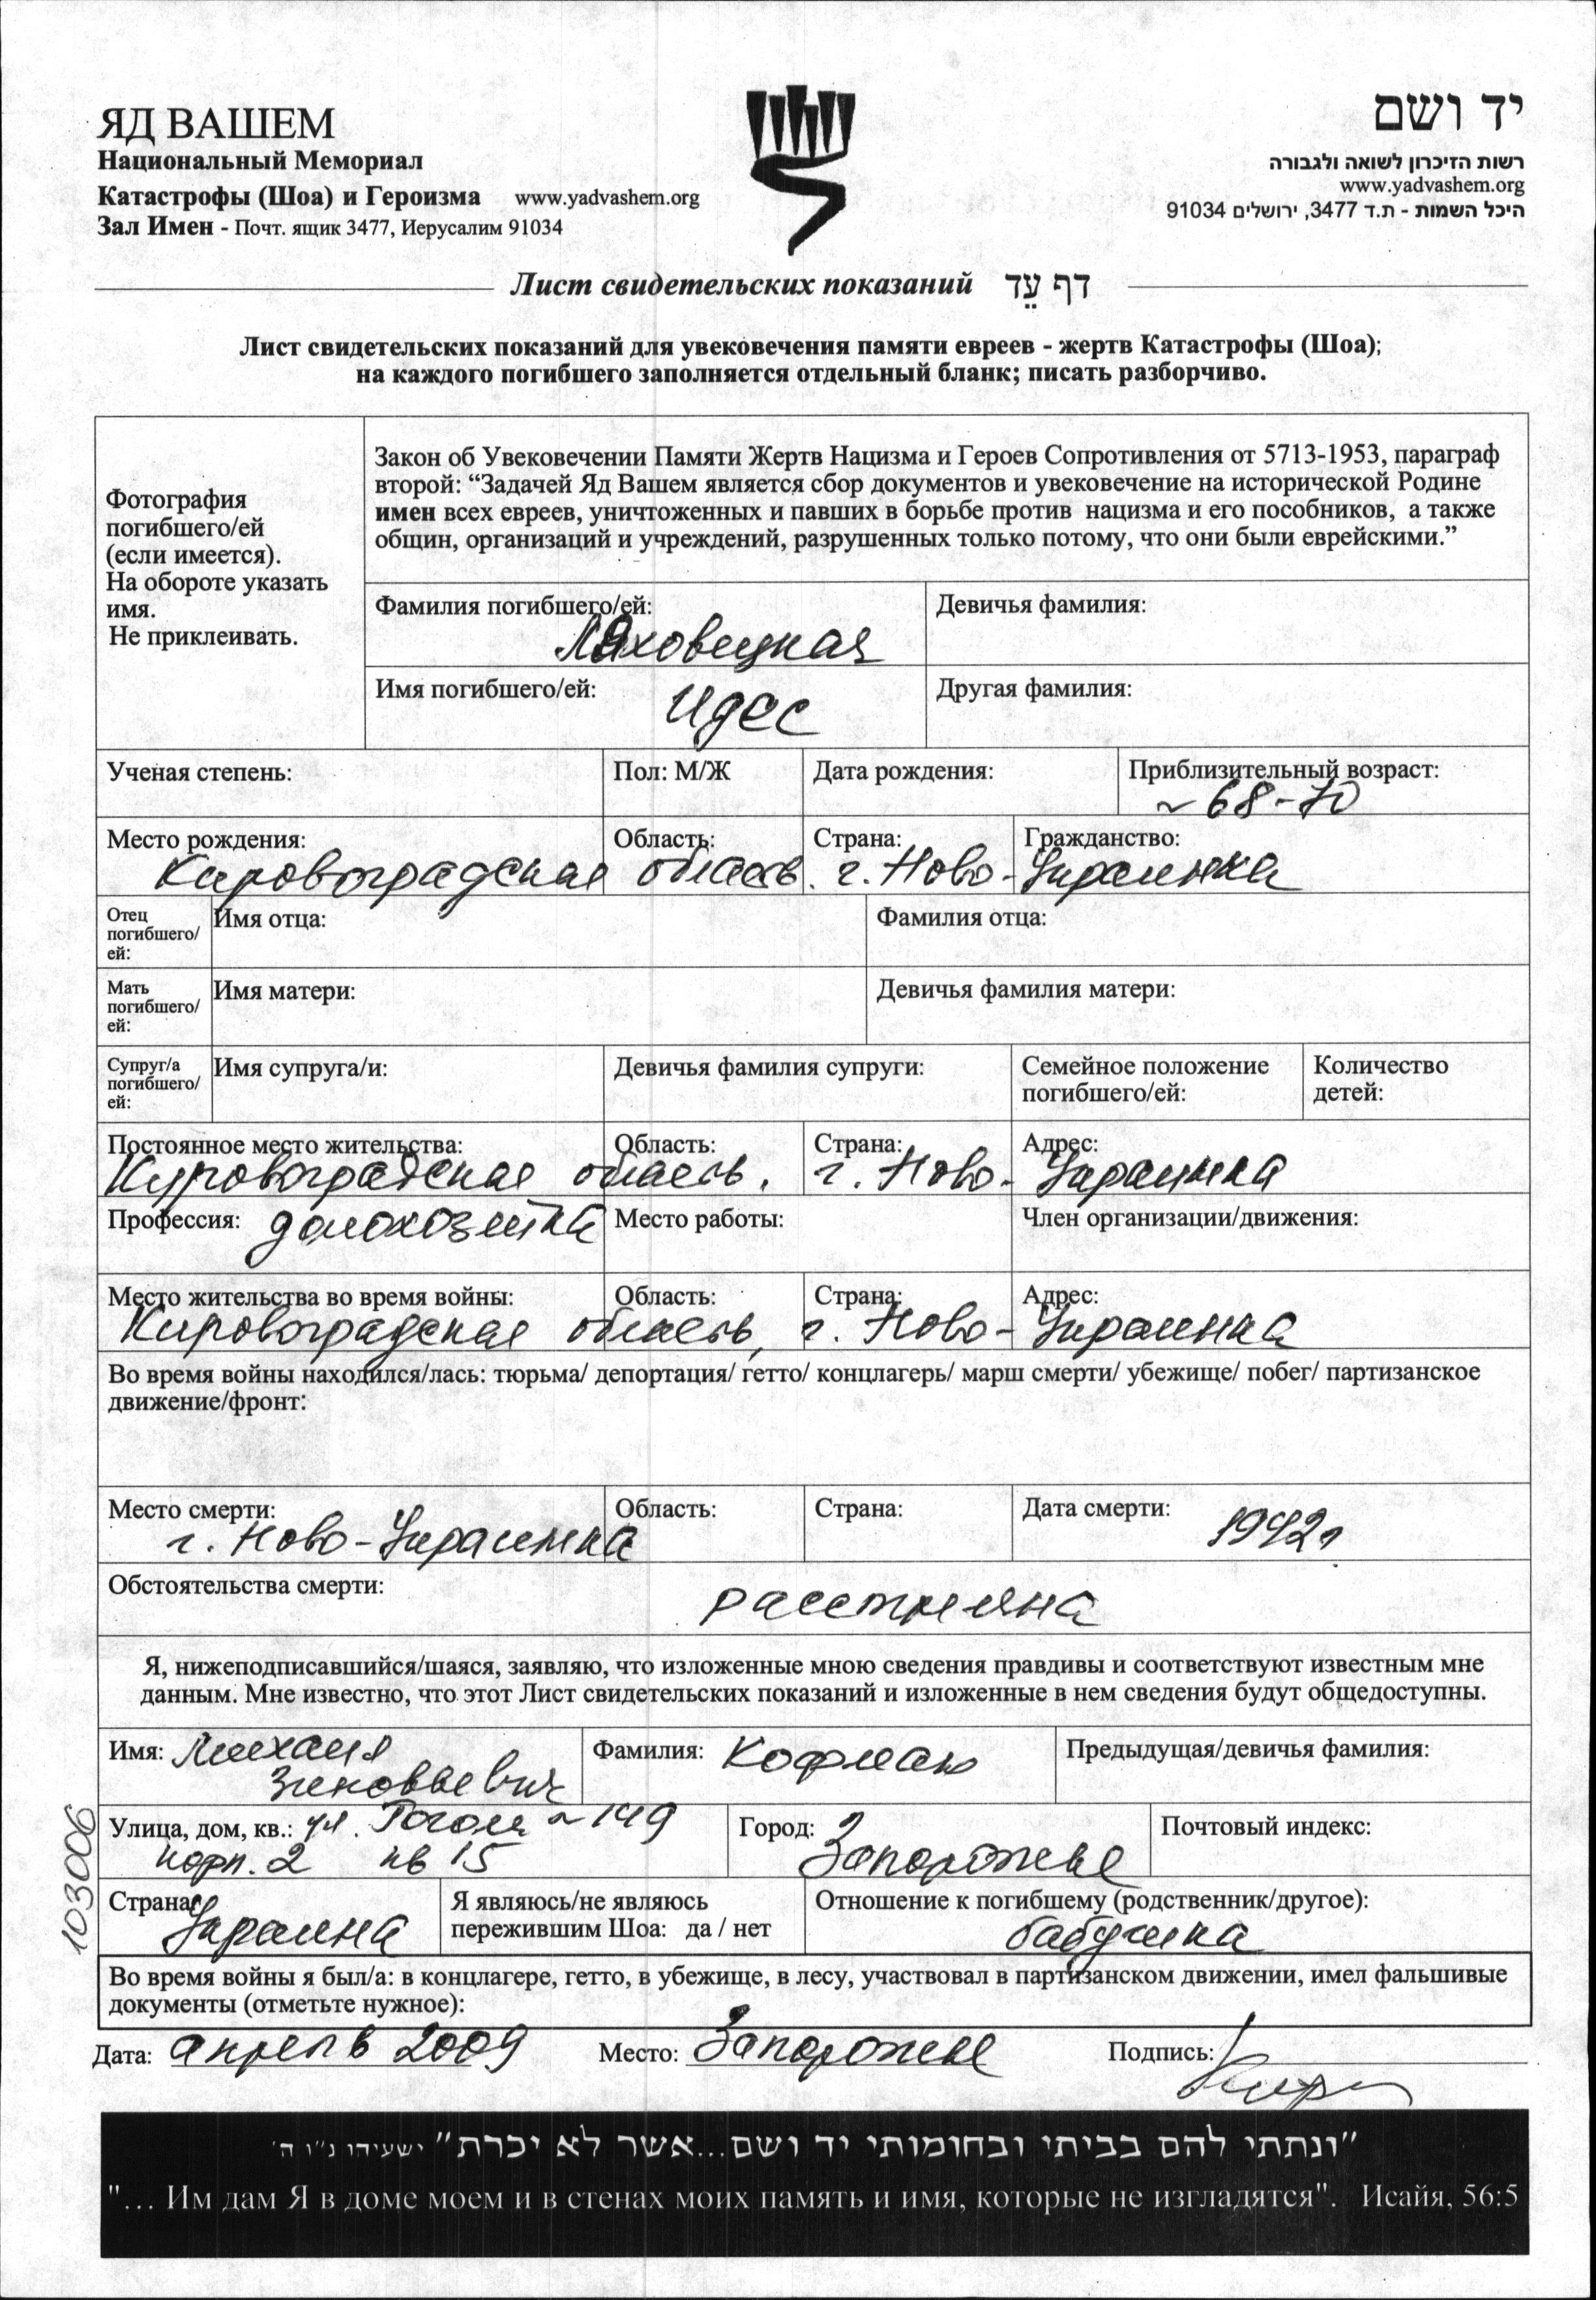 ЯД ВАШЕМ
Национальный Мемориал
Катастрофы (Шоа) и Героизма www.yadvashem.org
Зал Имен - Почт. ящик 3477, Иерусалим 91034
יד ושם
רשות הזיכרון לשואה ולגבורה
www.yadvashem.org
היכל השמות - ת.ד 3477, ירושלים 91034
Лист свидетельских показаний דף עֵד
Лист свидетельских показаний для увековечения памяти евреев - жертв Катастрофы (Шоа);
на каждого погибшего заполняется отдельный бланк; писать разборчиво.
Фотография
погибшего/ей
(если имеется).
На обороте указать
имя.
Не приклеивать.
Закон об Увековечении Памяти Жертв Нацизма и Героев Сопротивления от 5713-1953, параграф
второй: “Задачей Яд Вашем является сбор документов и увековечение на исторической Родине
имен всех евреев, уничтоженных и павших в борьбе против нацизма и его пособников, а также
общин, организаций и учреждений, разрушенных только потому, что они были еврейскими.”
Фамилия погибшего/ей: Девичья фамилия:
Ляховецкая
Имя погибшего/ей: Другая фамилия:
Идес
Ученая степень: Пол: М/Ж Дата рождения: Приблизительный возраст:
~ 68-70
Место рождения: Область: Страна: Гражданство:
Кировоградская область. г. Ново-Украинка
Отец
погибшего/
ей:
Имя отца: Фамилия отца:
Мать
погибшего/
ей:
Имя матери: Девичья фамилия матери:
Супруг/а
погибшего/
ей:
Имя супруга/и: Девичья фамилия супруги: Семейное положение
погибшего/ей:
Количество
детей:
Постоянное место жительства: Область: Страна: Адрес:
Кировоградская область. г. Ново-Украинка
Профессия: домохозяйка Место работы: Член организации/движения:
Место жительства во время войны: Область: Страна: Адрес:
Кировоградская область, г. Ново-Украинка
Во время войны находился/лась: тюрьма/ депортация/ гетто/ концлагерь/ марш смерти/ убежище/ побег/ партизанское
движение/фронт:
Место смерти: Область: Страна: Дата смерти: 1942г
г. Ново-Украинка
Обстоятельства смерти: расстреляна
Я, нижеподписавшийся/шаяся, заявляю, что изложенные мною сведения правдивы и соответствуют известным мне
данным. Мне известно, что этот Лист свидетельских показаний и изложенные в нем сведения будут общедоступны.
Имя: Михаил Фамилия: Кофман Предыдущая/девичья фамилия:
Зиновьевич
Улица, дом, кв.: ул. Гоголя 149 Город: Запорожье Почтовый индекс:
корп. 2 кв 15
Страна: Украина
Я являюсь/не являюсь
пережившим Шоа: да / нет
Отношение к погибшему (родственник/другое):
бабушка
103006
Во время войны я был/а: в концлагере, гетто, в убежище, в лесу, участвовал в партизанском движении, имел фальшивые
документы (отметьте нужное):
Дата: апрель 2009 Место: Запорожье Подпись:
"ונתתי להם בביתי ובחומותי יד ושם...אשר לא יכרת" ישעיהו נ"ו ה'
"... Им дам Я в доме моем и в стенах моих память и имя, которые не изгладятся". Исайя, 56:5